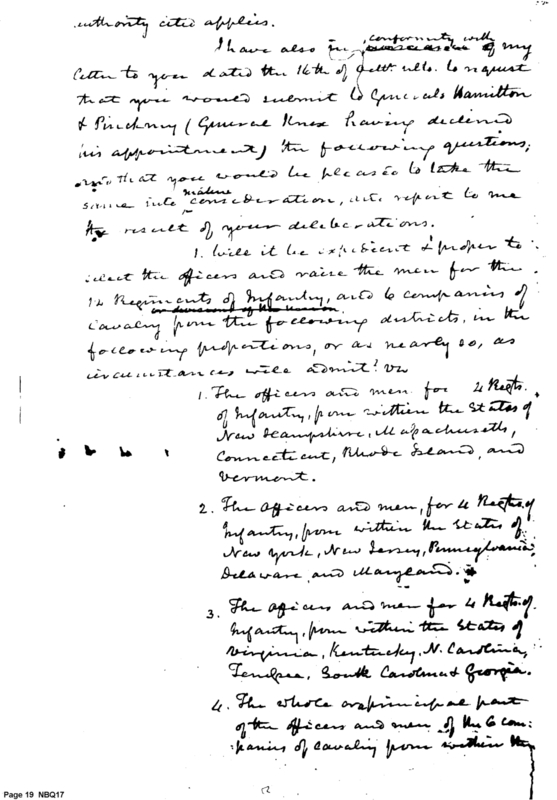 authority cited applies.
I have also in conformity with my
letter to you dated the 16th of Octr. ulto. to request
that you would submit to Generals Hamilton
& Pinckney (General Knox having declined
his appointment) the following questions;
and that you would be pleased to take the
same into mature consideration, and report to me
the result of your deliberations.
1. Will it be expedient & proper to
select the officers and raise the men for the
12 Regiments of Infantry, and 6 companies of
Cavalry from the following districts, in the
following proportions, or as nearly so, as
circumstances will admit? viz
1. The officers and men for 4 Regts.
of Infantry, from within the States of
New Hampshire, Massachusetts,
Connecticut, Rhode Island, and
Vermont.
2. The officers and men, for 4 Regts. of
Infantry, from within the States of
New York, New Jersey, Pennsylvania,
Delaware and Maryland.
3. The officers and men for 4 Regts. of
Infantry, from within the States of
Virginia, Kentucky, N. Carolina,
Tenessee, South Carolina & Georgia.
4. The whole or principal part
of the officers and men of the 6 com-
panies of cavalry from within the
Page 19 NBQ17